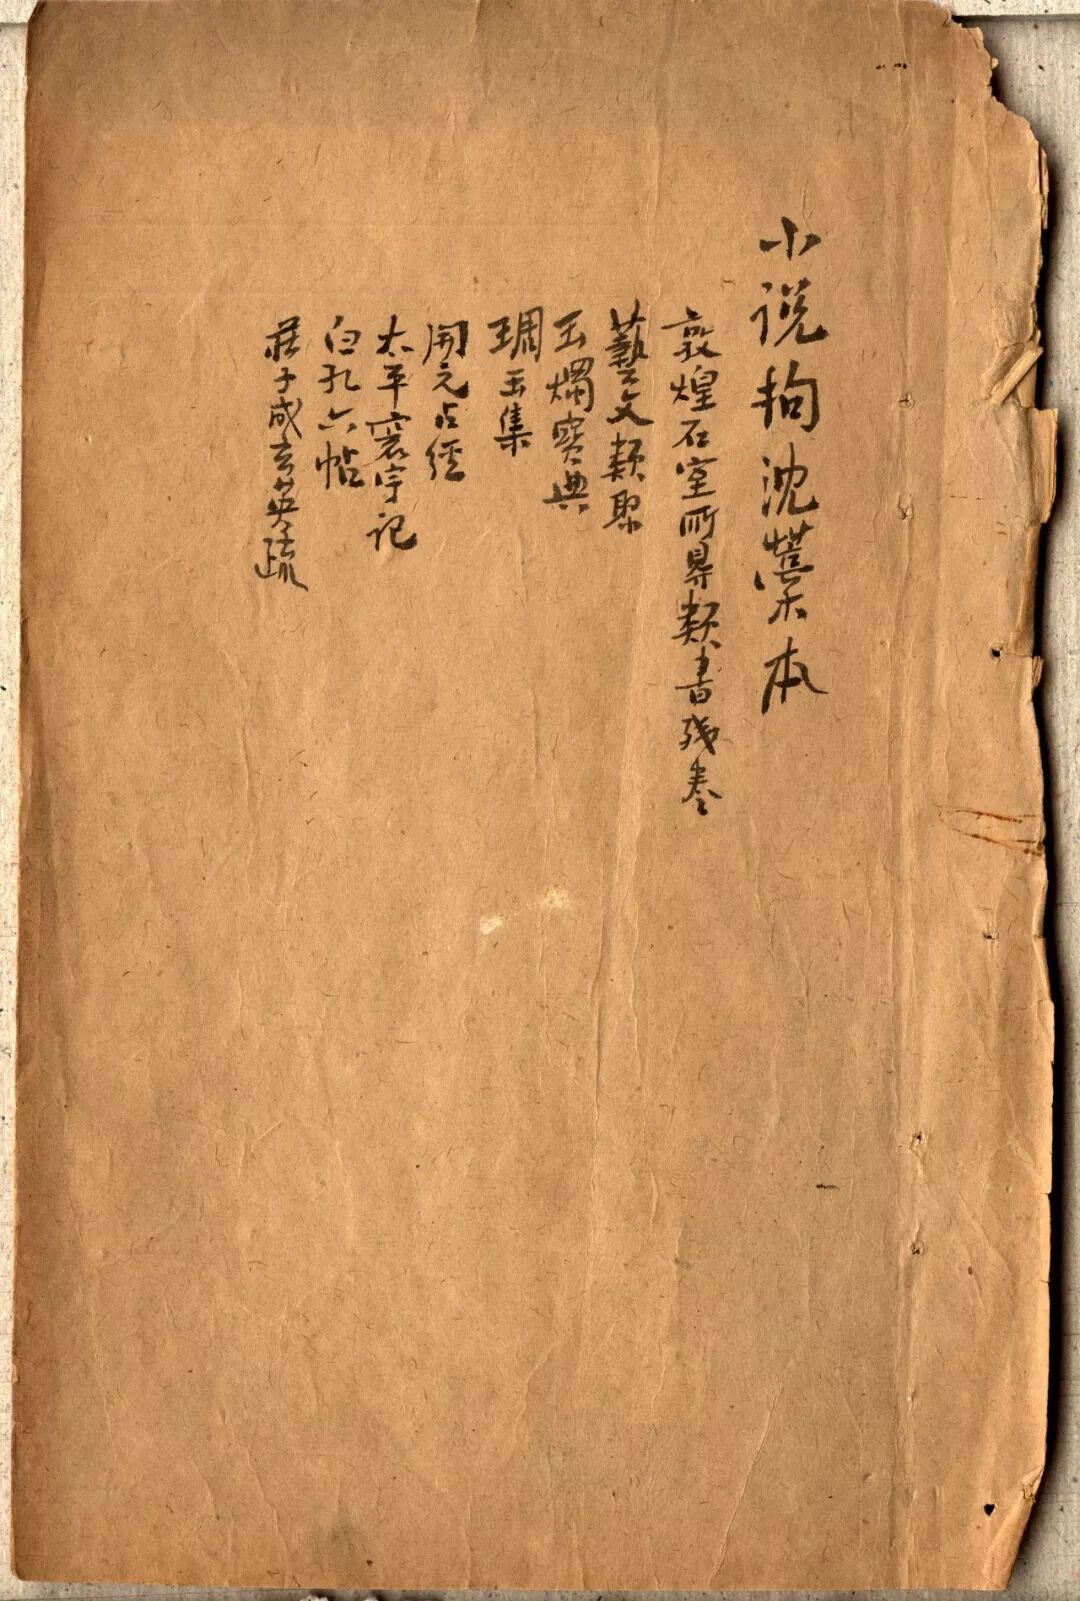 小说拘沈藁本
敦煌石室所㝵類書残卷
藝文類聚
玉燭寶典
琱玉集
開元占經
太平寰宇记
白孔六帖
莊子成玄英疏